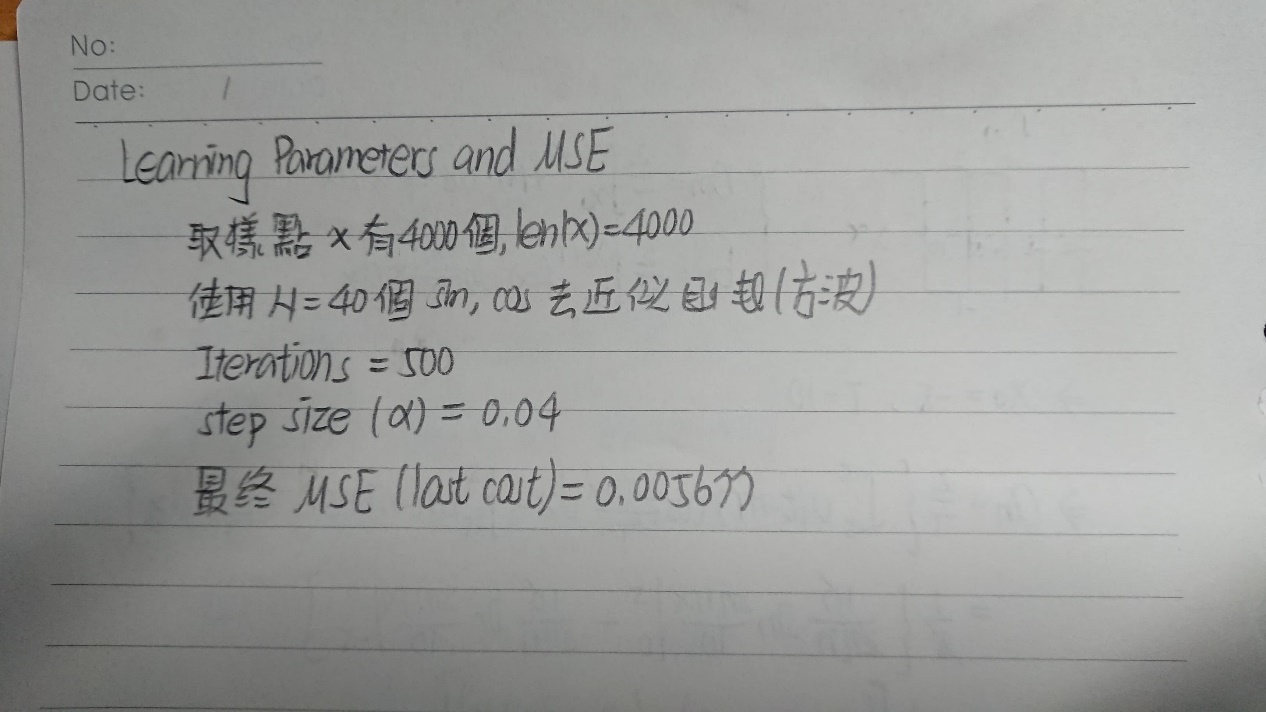 No:
Date: /
Learning Parameters and MSE
取樣點 x 有4000個, len(x)=4000
使用 N=40個 sin, cos 去近似函數(方波)
Iterations = 500
step size (α) = 0.04
最終 MSE (last cost) = 0.005677